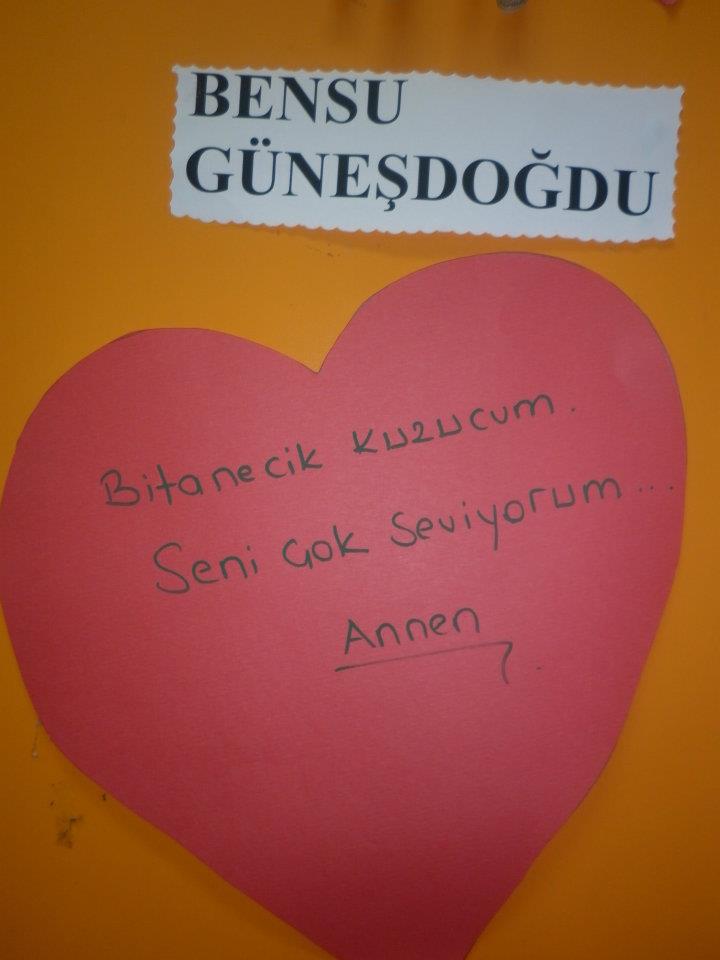 BENSU
GÜNEŞDOĞDU
Bitanecik kuzucum.
Seni çok seviyorum...
Annen